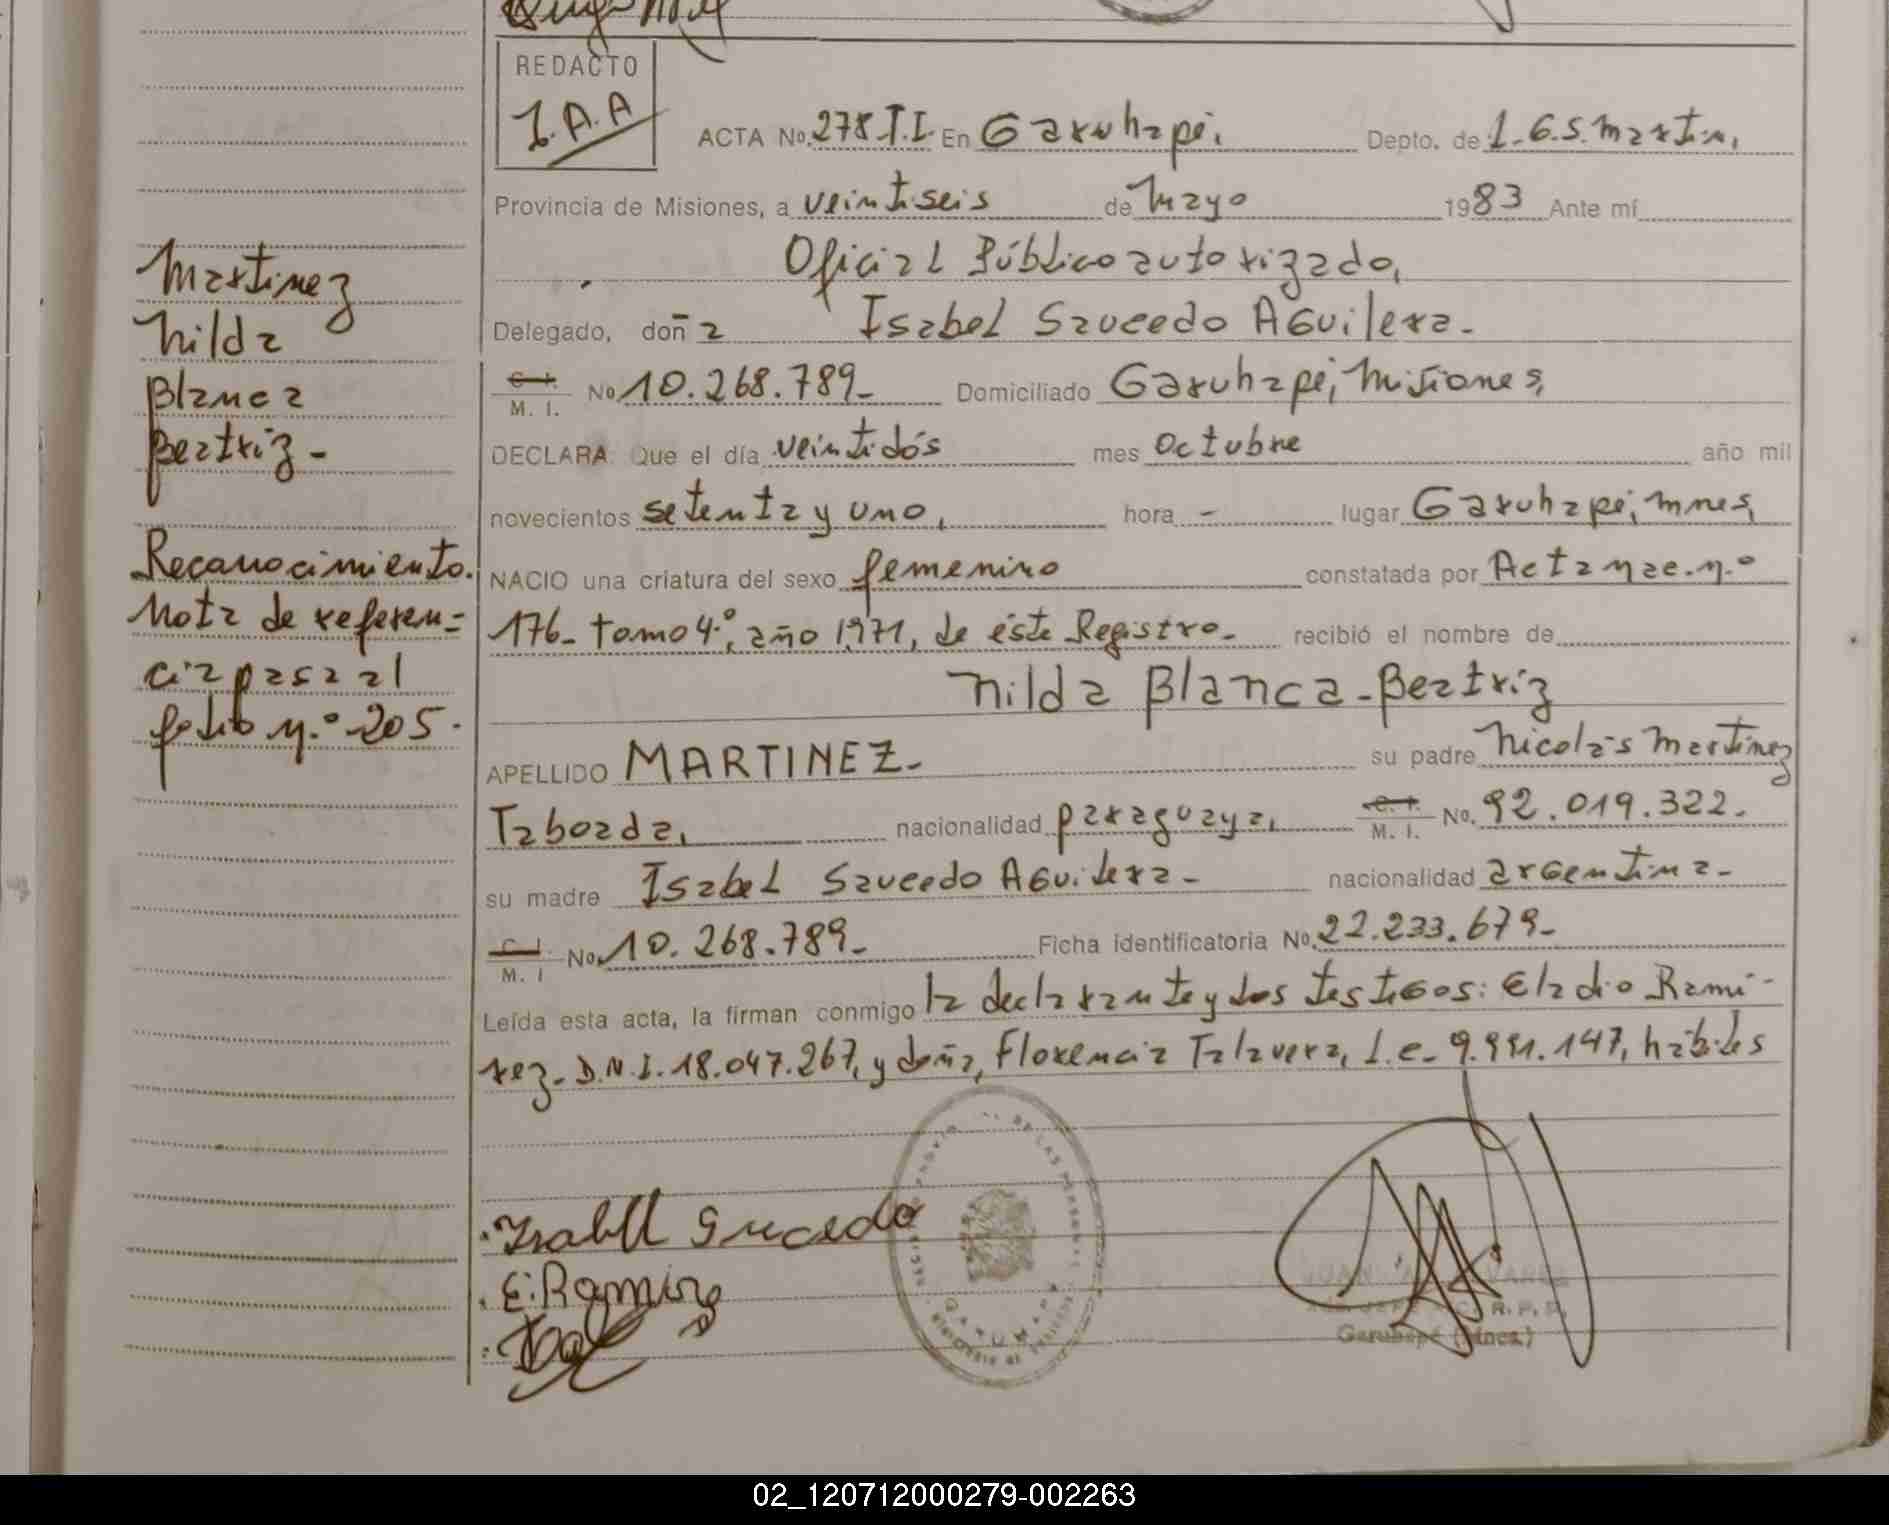 REDACTO
J.A.A
ACTA No. 278 T.I. En Garuhapé, Depto. de L. G. S. Martín,
Provincia de Misiones, a veintiseis de Mayo 1983 Ante mí
Oficial Público autorizado,
Delegado, doña Isabel Saucedo Aguilera.-
C. I. M. I. No. 10.268.789- Domiciliado Garuhapé, Misiones,
DECLARA: Que el día veintidós mes octubre año mil
novecientos setenta y uno, hora - lugar Garuhapé, Mnes,
NACIO una criatura del sexo femenino constatada por Acta nac. n.º
176- tomo 4.º, año 1,971, de éste Registro.- recibió el nombre de
Nilda Blanca-Beatriz
APELLIDO MARTINEZ- su padre Nicolás Martinez
Taboada, nacionalidad paraguaya, C. I. M. I. No. 92.019.322-
su madre Isabel Saucedo Aguilera- nacionalidad argentina-
C. I. M. I No. 10.268.789- Ficha identificatoria No. 22.233.679-
Leída esta acta, la firman conmigo la declarante y los testigos: Eladio Rami-
rez- D.N.I. 18.047.267, y doña, Florencia Talavera, L.c- 9.991.147, hábiles
Martinez
Nilda
Blanca
Beatriz-
Reconocimiento.
Nota de referen=
cia pasa al
folio n.º 205.
Isabell Sucedo
E. Ramirez
GARUHAPE
JUAN ALVAREZ
JEFE R.P.P.
Garuhapé (Mnes.)
02_120712000279-002263